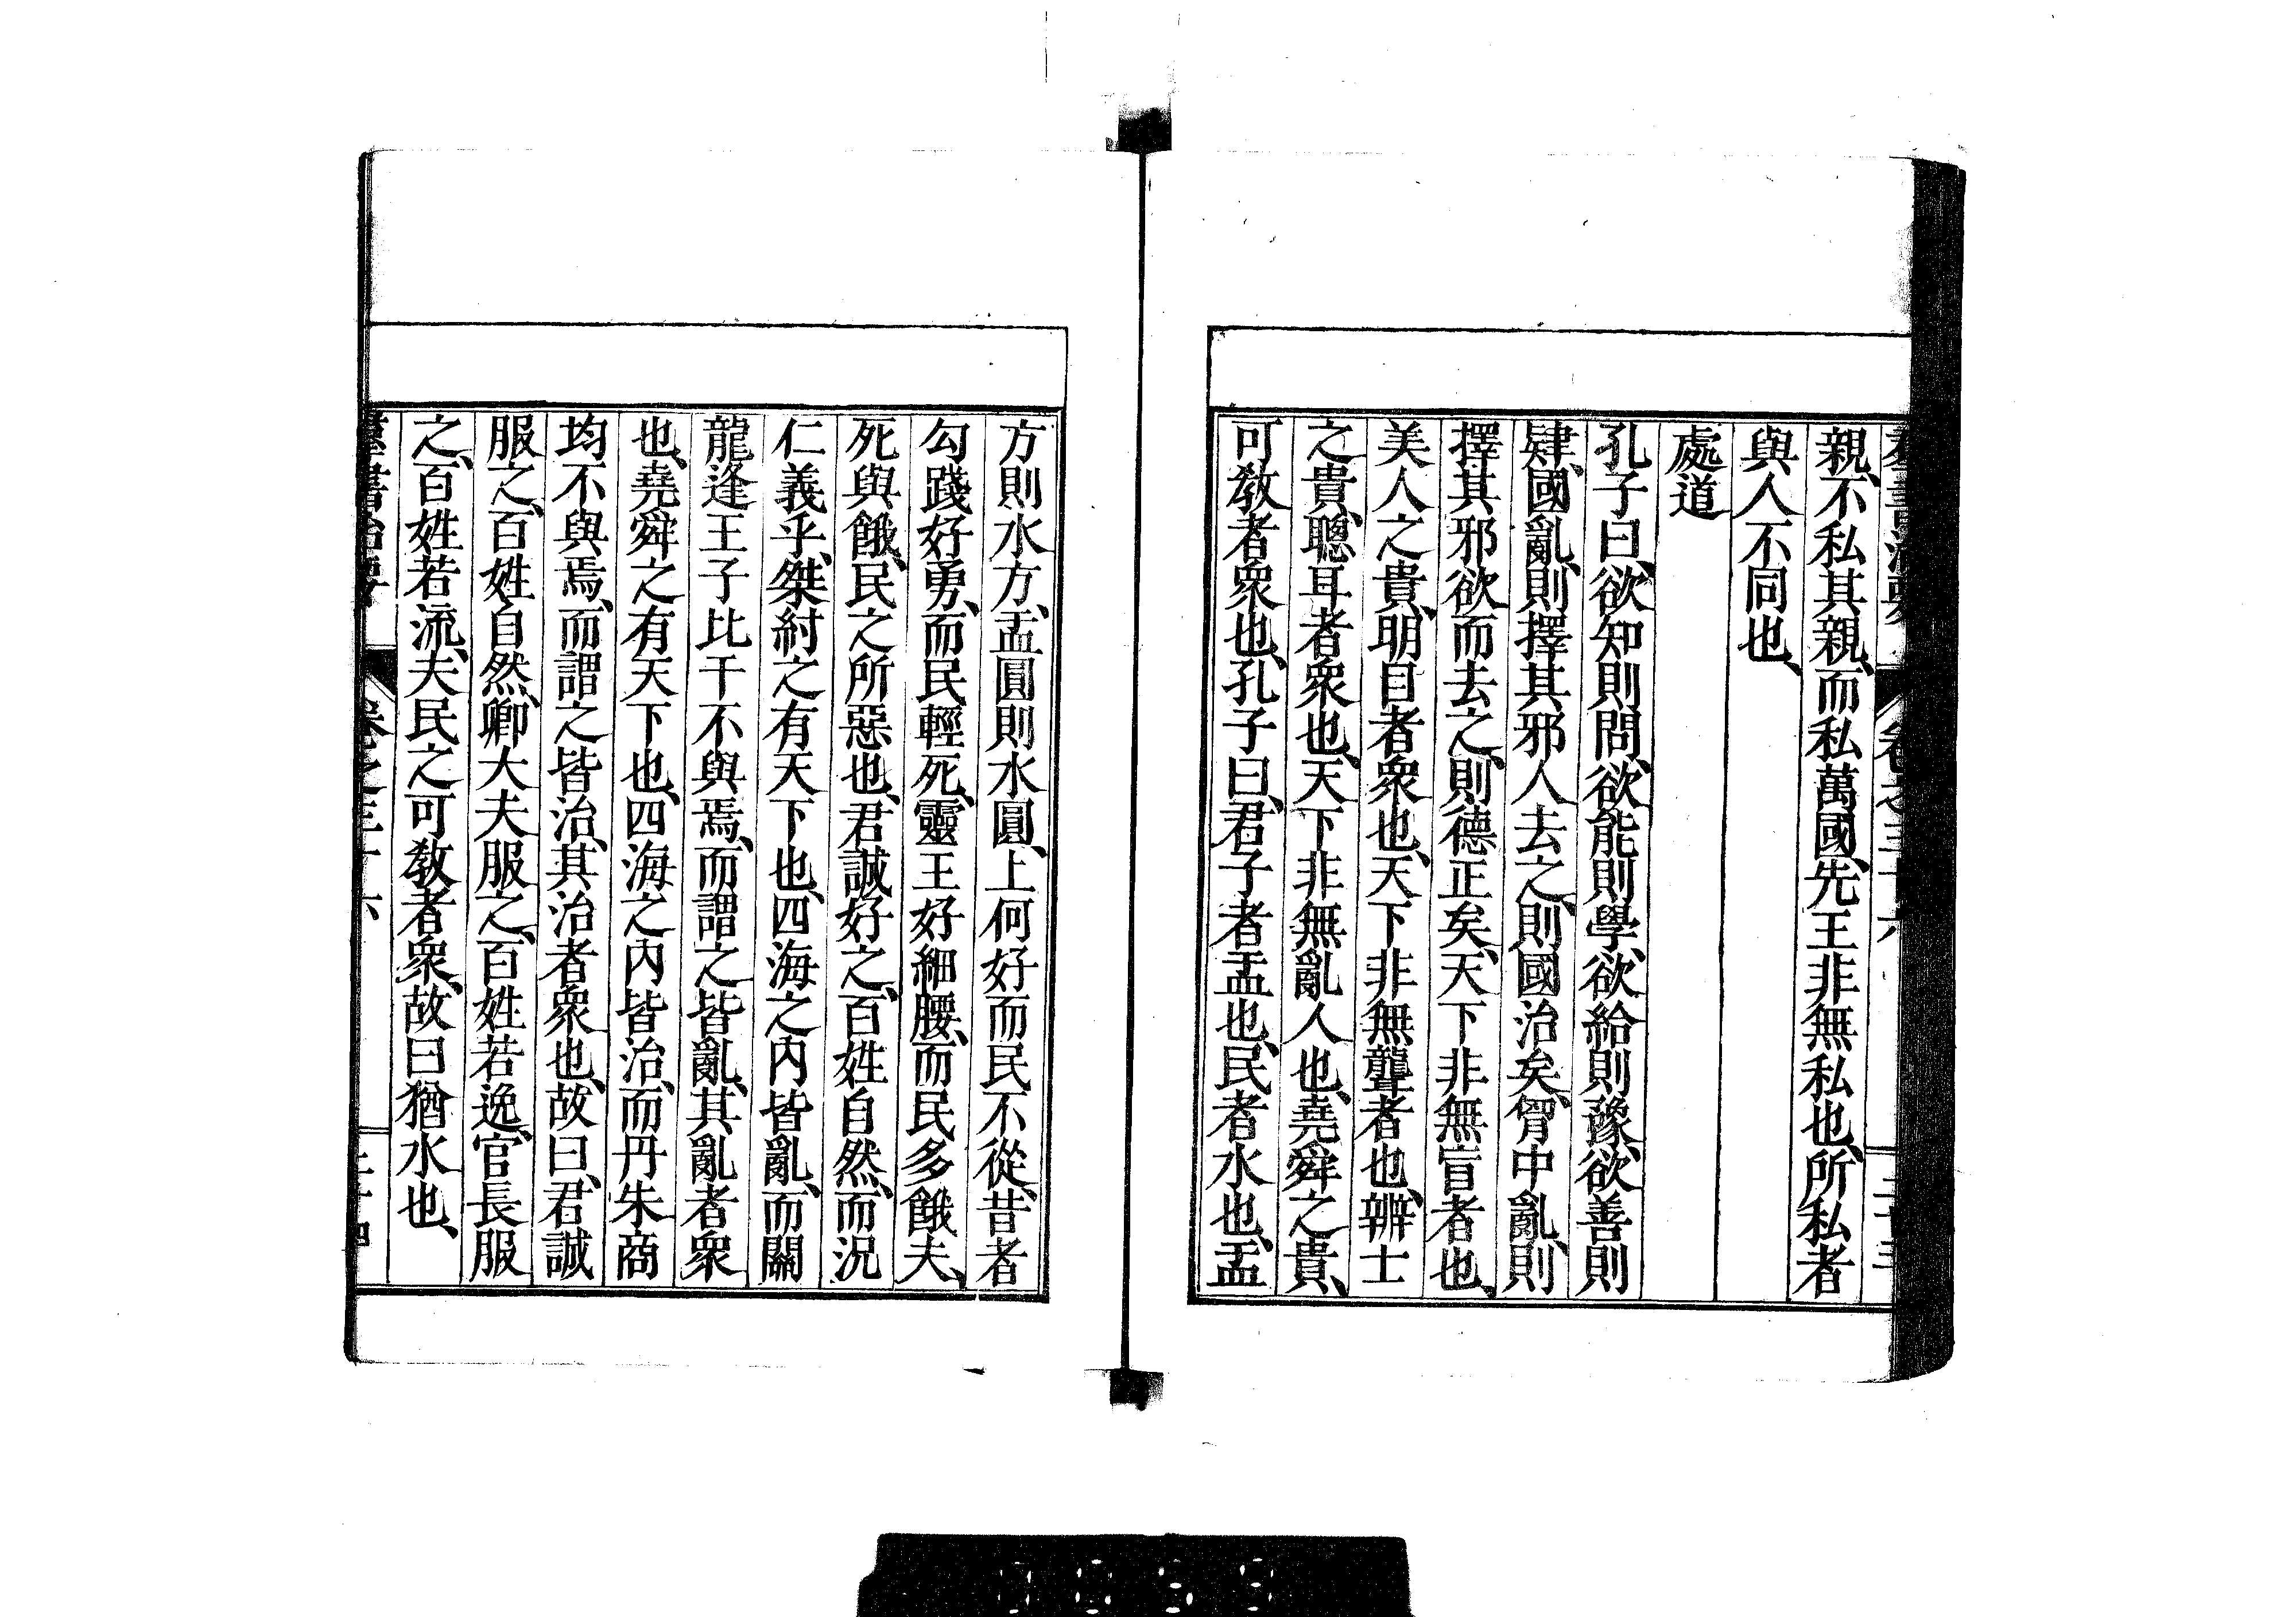 羣書治要 卷之三十六 二十三
親、不私其親、而私萬國、先王非無私也、所私者
與人不同也、
處道
孔子曰、欲知則問、欲能則學、欲給則豫、欲善則
肄、國亂、則擇其邪人去之、則國治矣、胷中亂、則
擇其邪欲而去之、則德正矣、天下非無盲者也、
美人之貴、明目者衆也、天下非無聾者也、辨士
之貴、聰耳者衆也、天下非無亂人也、堯舜之貴、
可敎者衆也、孔子曰、君子者盂也、民者水也、盂
方則水方、盂圓則水圓、上何好而民不從、昔者
勾踐好勇、而民輕死、靈王好細腰、而民多餓夫、
死與餓、民之所惡也、君誠好之、百姓自然、而況
仁義乎、桀紂之有天下也、四海之內皆亂、而關
龍逢王子比干不與焉、而謂之皆亂、其亂者衆
也、堯舜之有天下也、四海之內皆治、而丹朱商
均不與焉、而謂之皆治、其治者衆也、故曰、君誠
服之、百姓自然、卿大夫服之、百姓若逸、官長服
之、百姓若流、夫民之可敎者衆、故曰猶水也、
羣書治要 卷之三十六 二十四